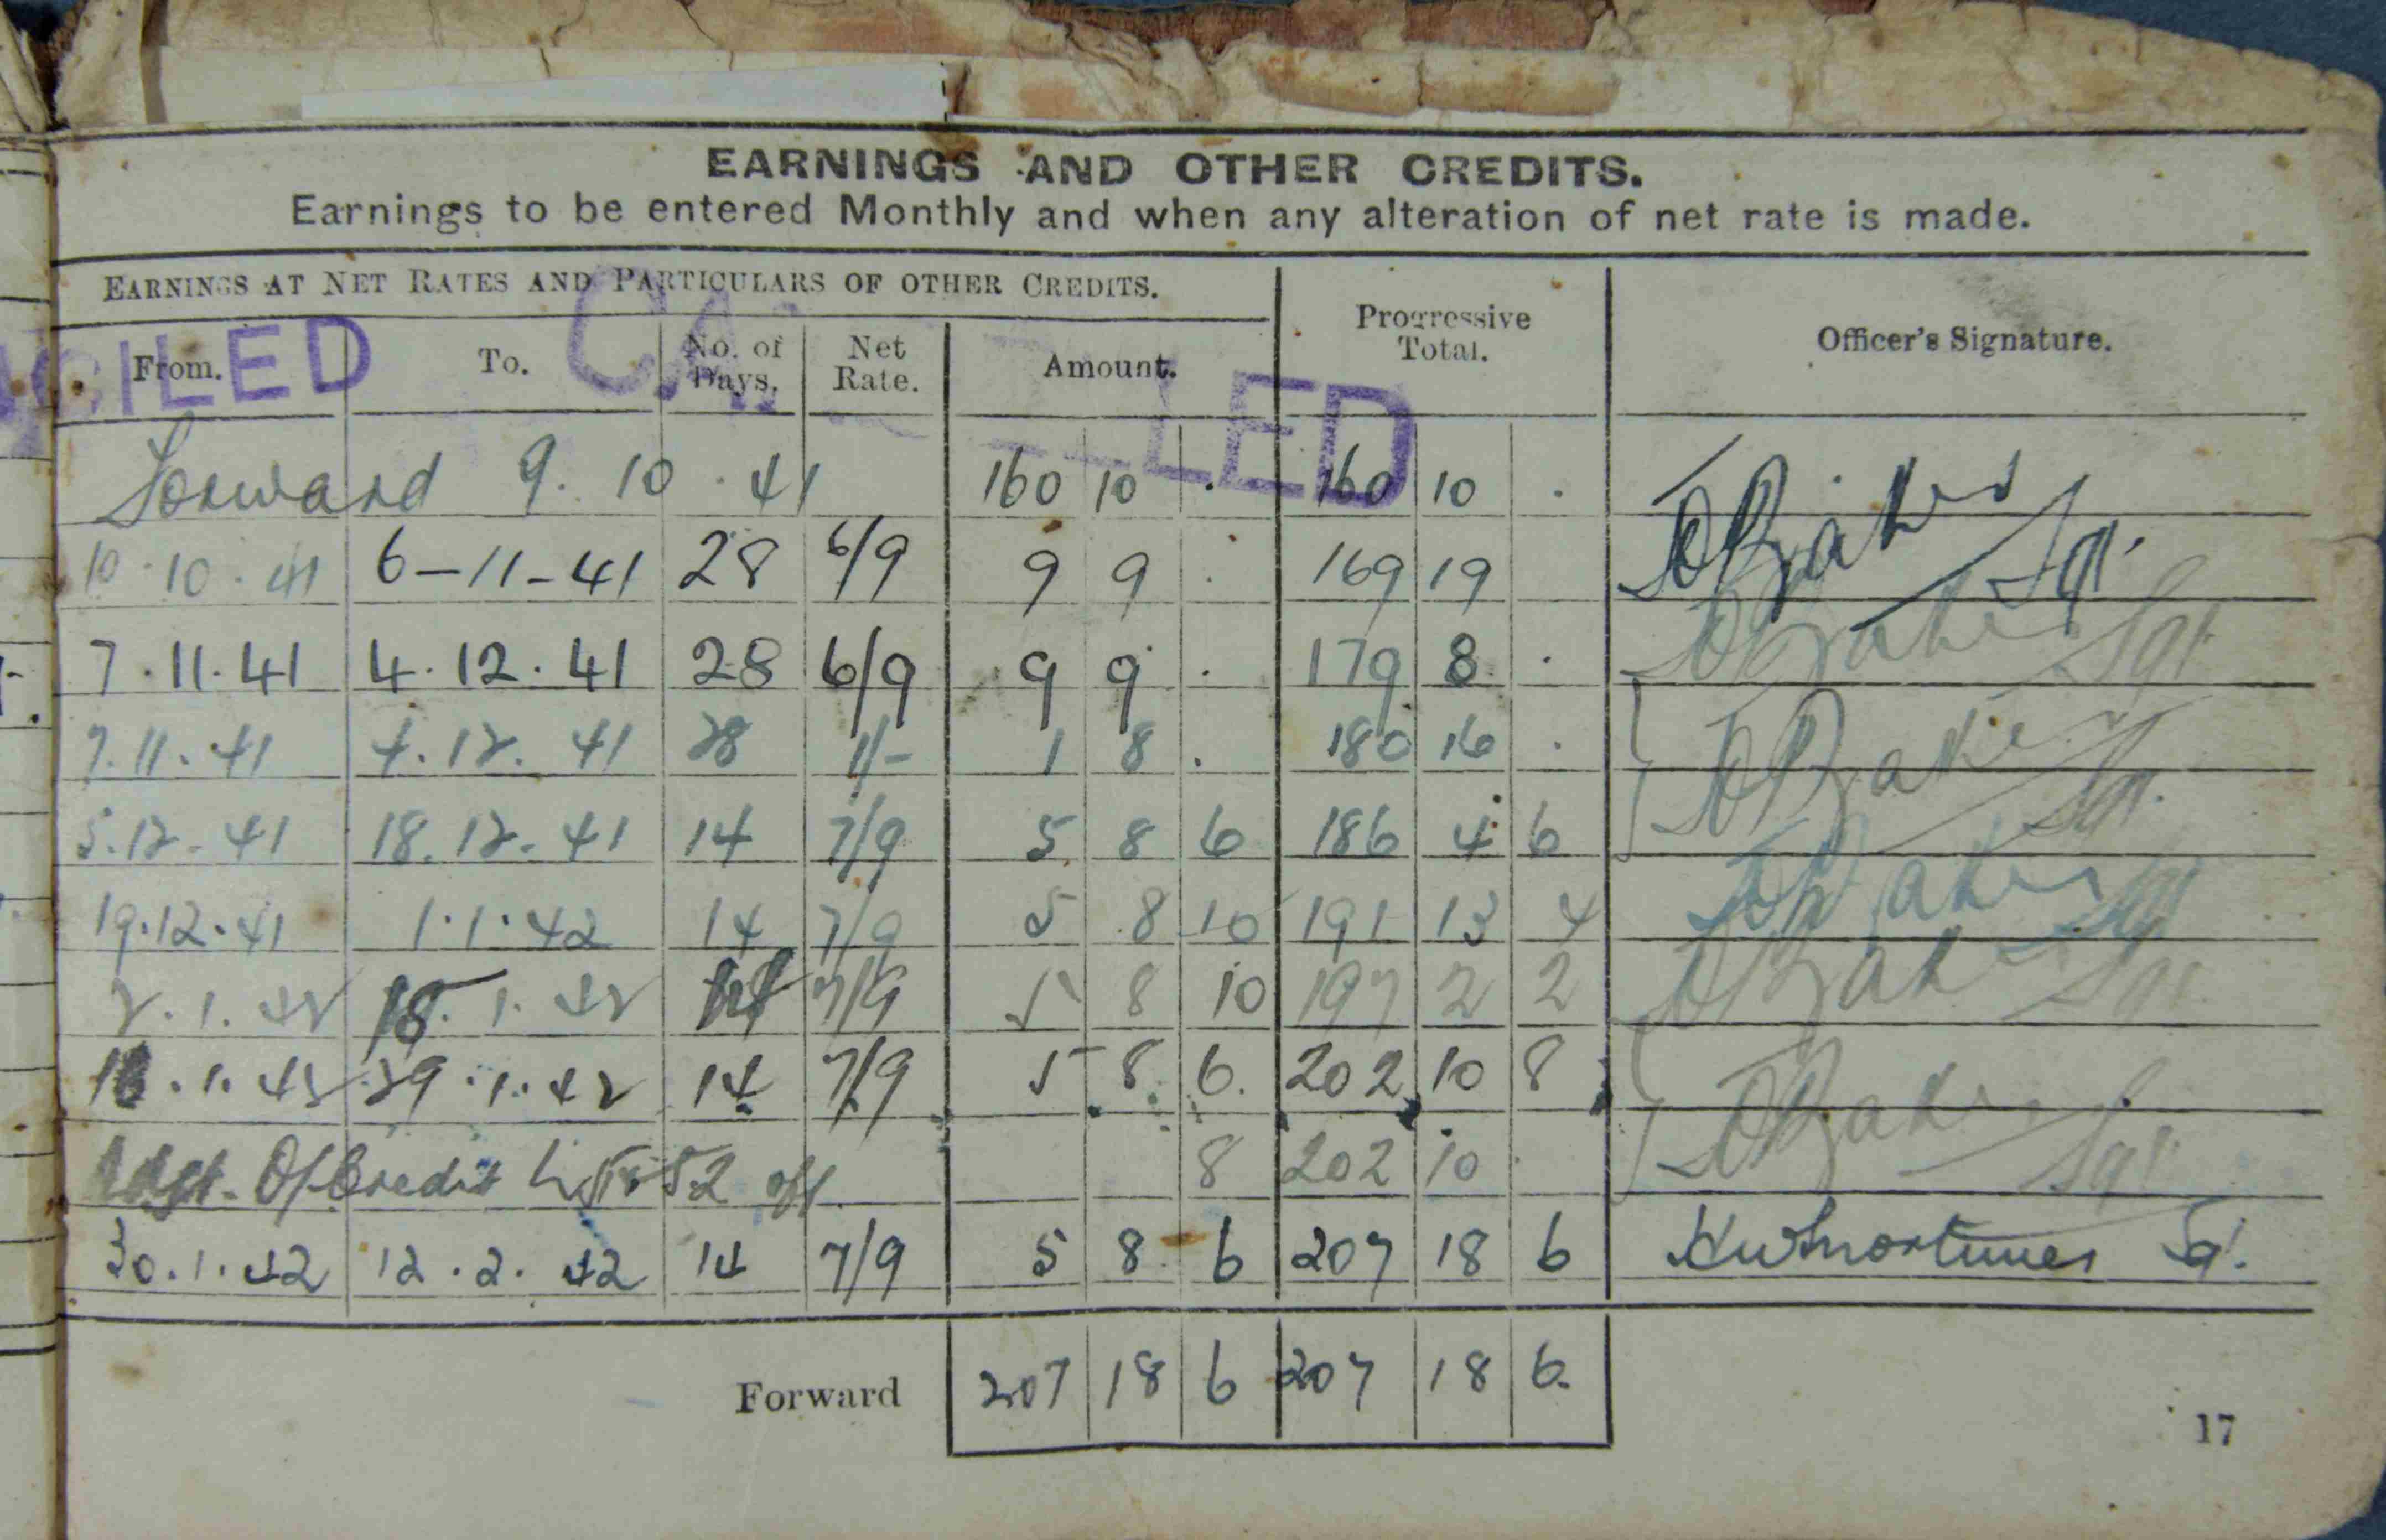 EARNINGS AND OTHER CREDITS.
Earnings to be entered Monthly and when any alteration of net rate is made.
EARNINGS AT NET RATES AND PARTICULARS OF OTHER CREDITS.
Progressive Total.
Officer's Signature.
From. To. No. of Days. Net Rate. Amount.
CILED LED
Forward 9. 10. 41 160 10 . 160 10 .
10.10.41 6-11-41 28 6/9 9 9 . 169 19 Baker Sgt.
7.11.41 4.12.41 28 6/9 9 9 . 179 8 . Baker Sgt.
7.11.41 4.12.41 28 1/- 1 8 . 180 16 .
5.12.41 18.12.41 14 7/9 5 8 6 186 4 6 Baker Sgt.
19.12.41 1.1.42 14 7/9 5 8 10 191 13 4 Baker Sgt
2.1.42 15.1.42 14 7/9 5 8 10 197 2 2 Baker Sgt.
16.1.42 29.1.42 14 7/9 5 8 6. 202 10 8
Adjt. Of Credit 52 off 8 202 10 . Baker Sgt.
30.1.42 12.2.42 14 7/9 5 8 6 207 18 6
Forward 207 18 6 207 18 6.
17